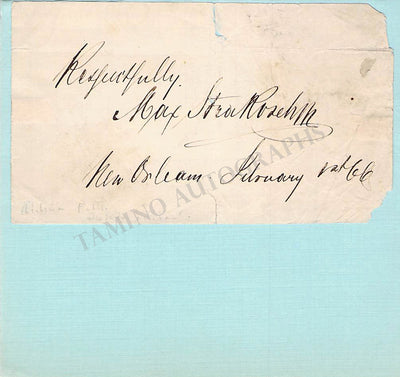 Respectfully
Max Strakosch
New Orleans February 1st 66
TAMINO AUTOGRAPHS